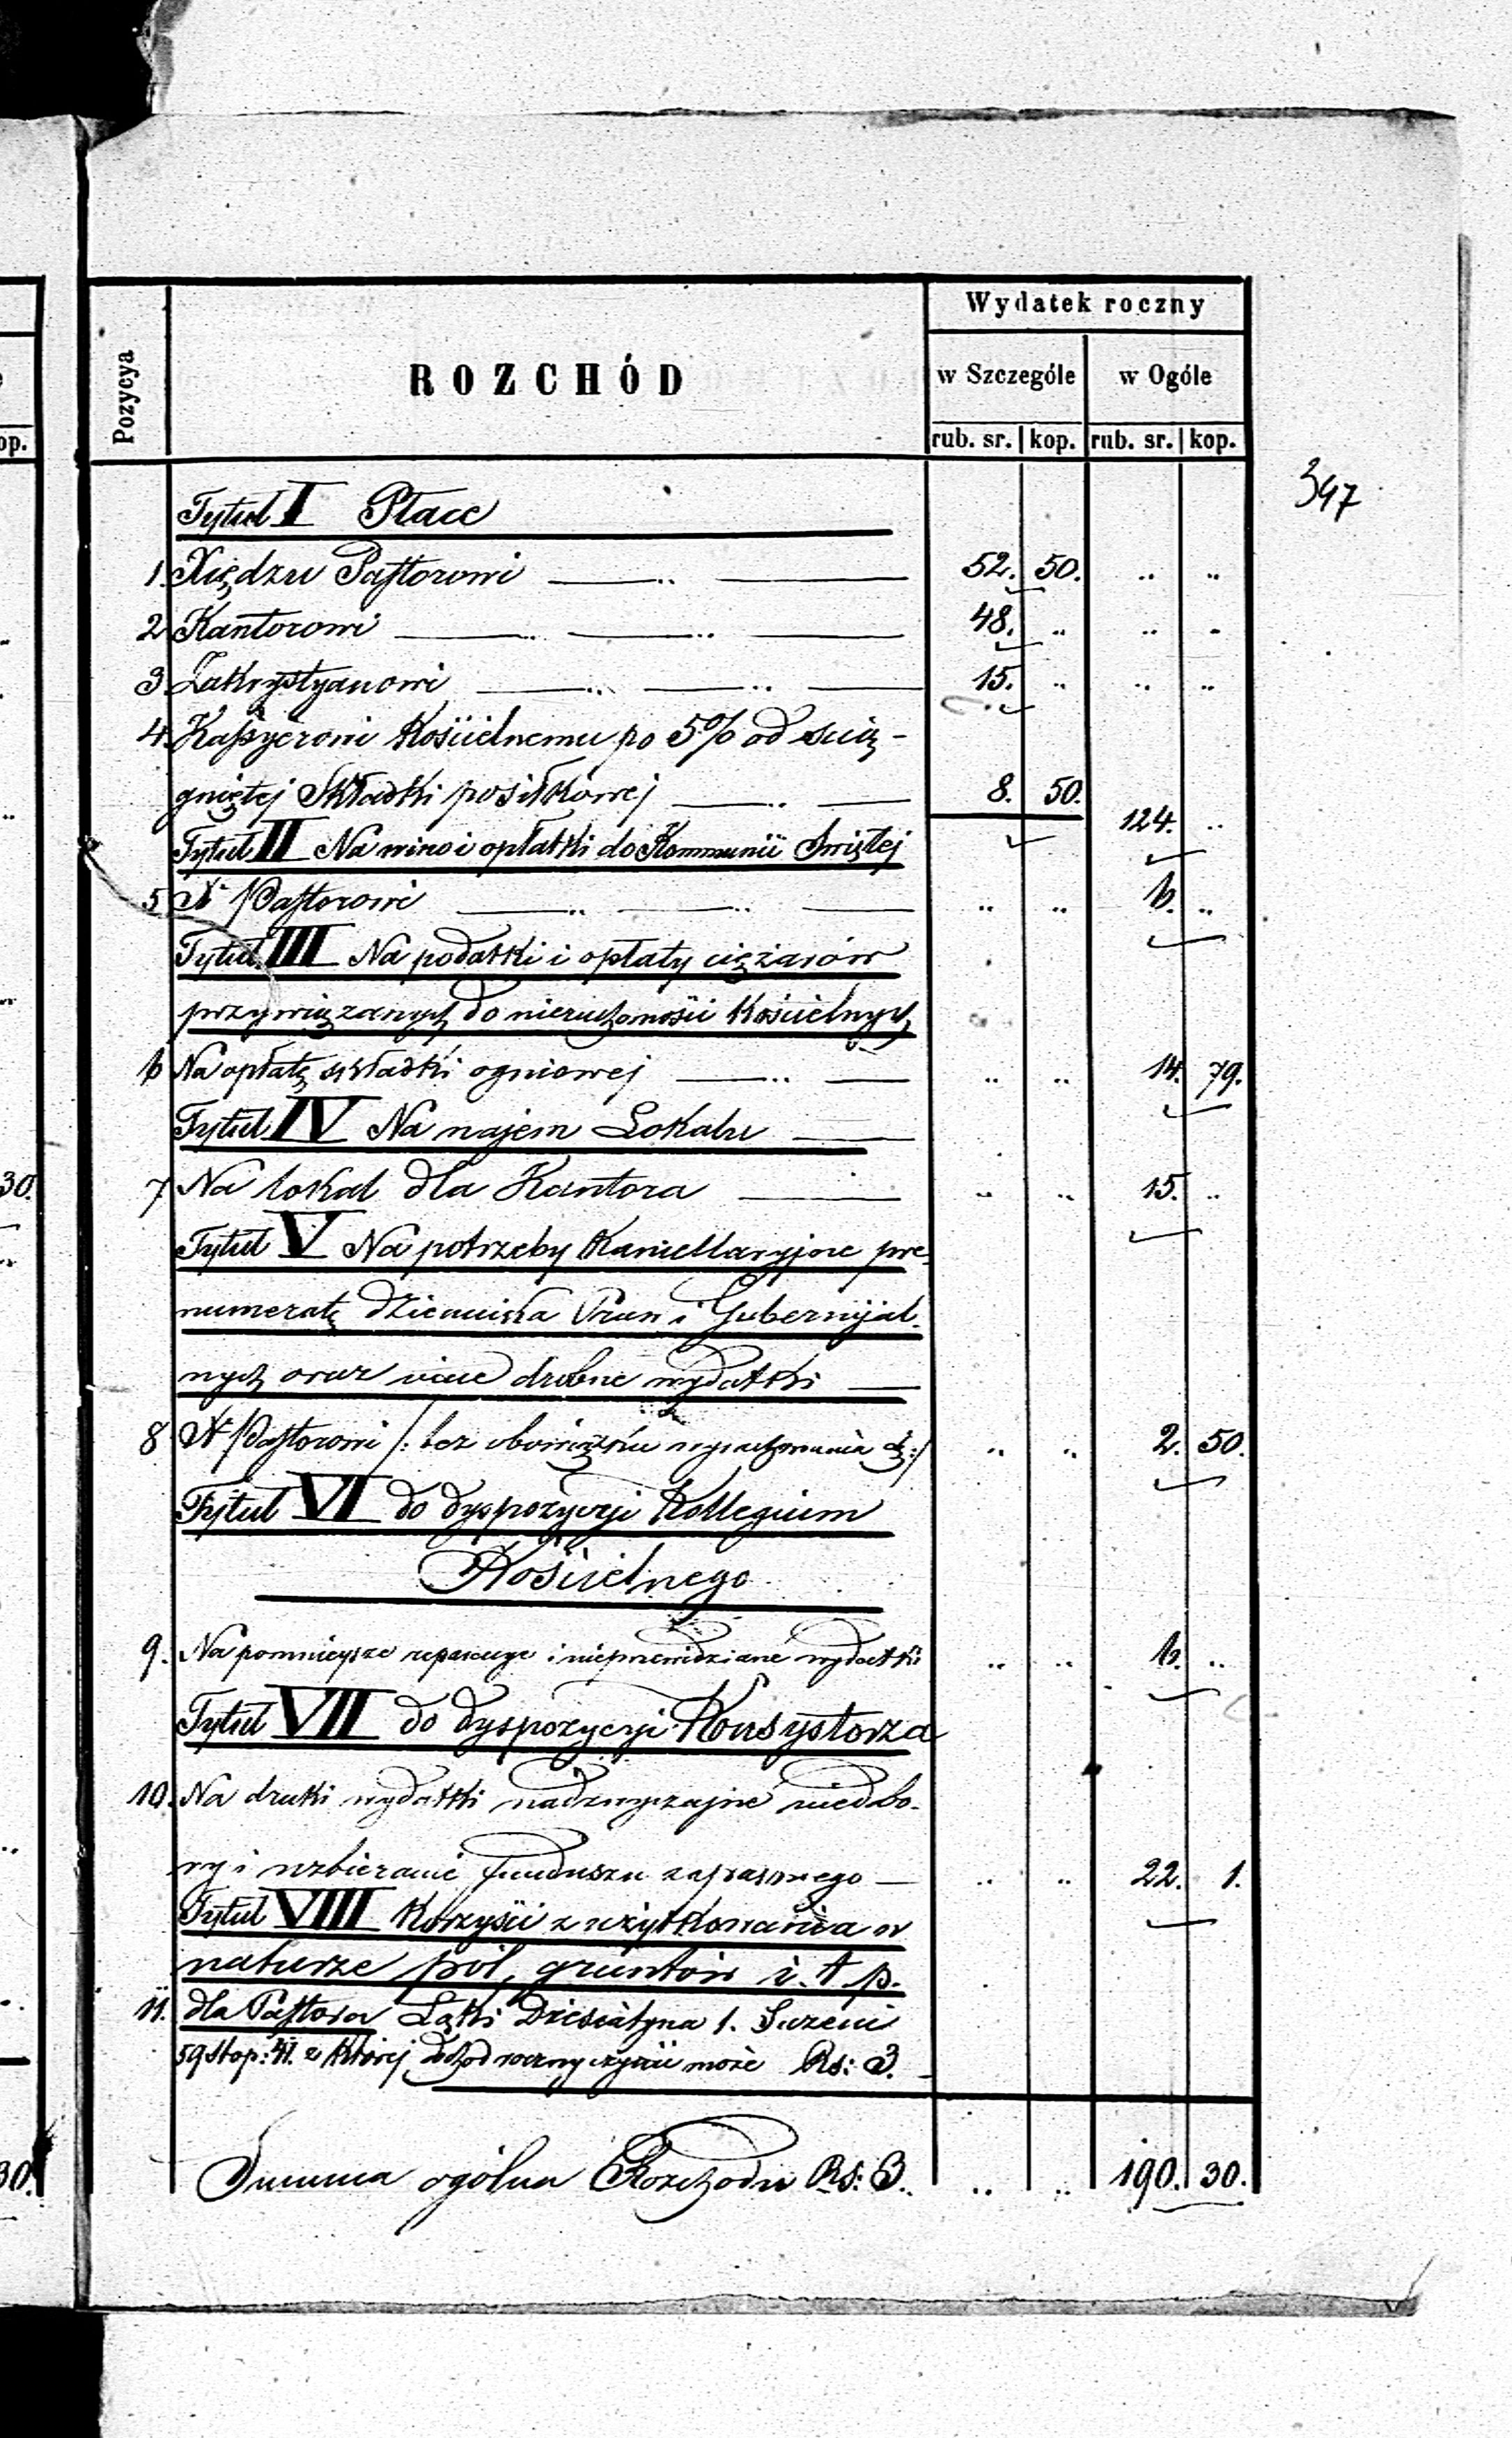 op.
30.
30.
347
Pozycya
ROZCHÓD
Wydatek roczny
w Szczególe w Ogóle
rub. sr. kop. rub. sr. kop.
Tytuł I Płace
1. Xiędzu Pastorowi 52. 50. „ „
2 Kantorowi 48. „ „ „
3. Zakrystyanowi 15. „ „ „
4. Kassyerowi Kościelnemu po 5% od ścią-
gniętej Składki posiłkowej 8. 50. 124. „
Tytuł II Na wino i opłatki do Kommunii Świętej
5 X Pastorowi „ „ 6. „
Tytuł III Na podatki i opłaty ciężarów
przywiązanych do nieruchomości Kościelnych
6 Na opłatę składki ogniowej „ „ 14. 79.
Tytuł IV Na najem Lokalu
7 Na lokal dla Kantora „ „ 15. „
Tytuł V Na potrzeby Kancellaryjne pre-
numeratę dziennika Praw i Gubernijal-
nych oraz inne drobne wydatki
8 X Pastorowi /: bez obowiązku wyrachowania się :/ „ „ 2. 50.
Tytuł VI do dyspozycyi Kollegium
Kościelnego
9. Na pomniejsze reparacye i nieprzewidziane wydatki „ „ 6. „
Tytuł VII do dyspozycyi Konsystorza
10. Na druki wydatki nadzwyczajne niedobo-
ry i uzbieranie funduszu zapasowego „ „ 22. 1.
Tytuł VIII Korzyści z użytkowania w
naturze pól, gruntów i. t. p.
11. dla Pastora Łąki Dziesiatyna 1. Sążeni
59 stop: 41. z której dochód roczny czynić może Rs: 3.
Summa ogólna Rozchodu Rs: 3. „ „ 190. 30.